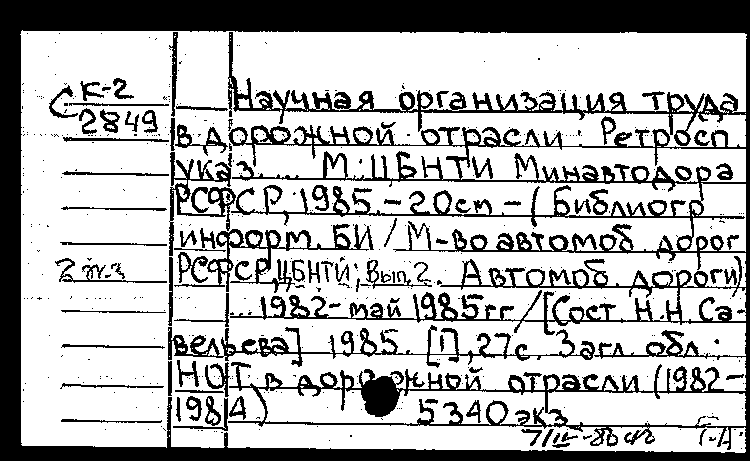 К-2
2849
Научная организация труда
в дорожной отрасли: Ретросп.
указ.... М.: ЦБНТИ Минавтодора
РСФСР, 1985. - 20см - (Библиогр
информ. БИ / М-во автомоб. дорог
2 экз РСФСР, ЦБНТИ; Вып. 2. Автомоб. дороги)
...1982 - май 1985гг / [Сост. Н.Н. Са-
вельева] 1985. [1], 27с. Загл. обл.:
НОТ в дорожной отрасли (1982-
1984) 5340 экз.